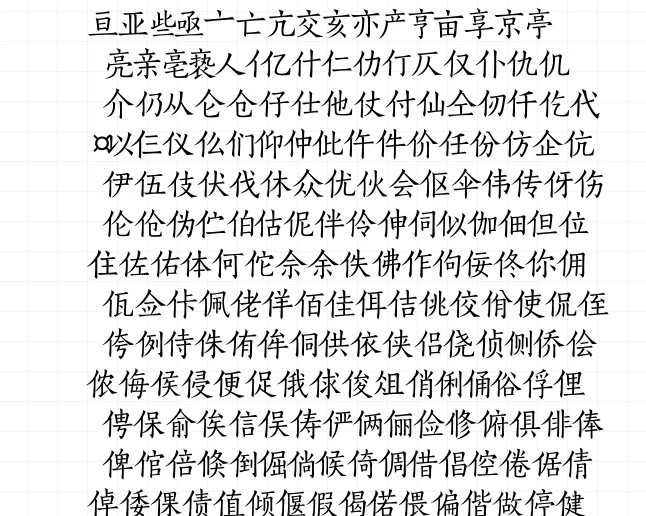 亘亚些亟亠亡亢交亥亦产亨亩享京亭
亮亲亳亵人亻亿什仁仂仃仄仅仆仇仉
介仍从仑仓仔仕他仗付仙仝仞仟仡代
¤以仨仪仫们仰仲仳仵件价任份仿企伉
伊伍伎伏伐休众优伙会伛伞伟传伢伤
伦伧伪伫伯估伲伴伶伸伺似伽佃但位
住佐佑体何佗佘余佚佛作佝佞佟你佣
佤佥佧佩佬佯佰佳佴佶佻佼佾使侃侄
侉例侍侏侑侔侗供依侠侣侥侦侧侨侩
侬侮侯侵便促俄俅俊俎俏俐俑俗俘俚
俜保俞俟信俣俦俨俩俪俭修俯俱俳俸
俾倌倍倏倒倔倘候倚倜借倡倥倦倨倩
倬倭倮债值倾偃假偈偌偎偏偕做停健